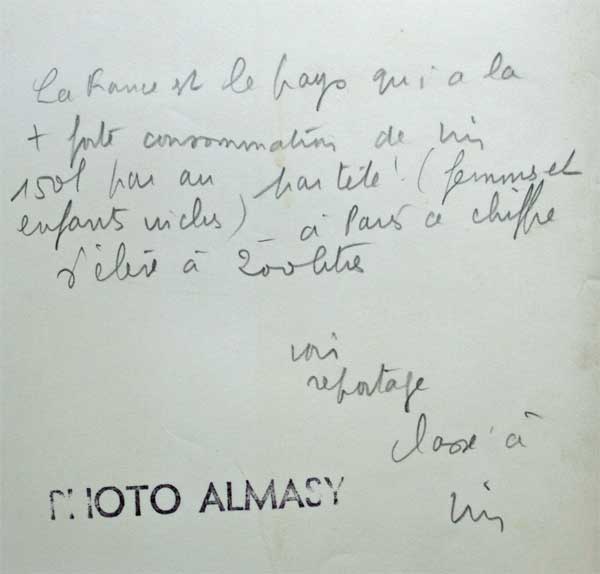 La France est le pays qui a la
+ forte consommation de vin
150l par an par tête! (femmes et
enfants inclus) _ à Paris ce chiffre
s'élève à 200 litres
voir
reportage
classé à
vin
PHOTO ALMASY